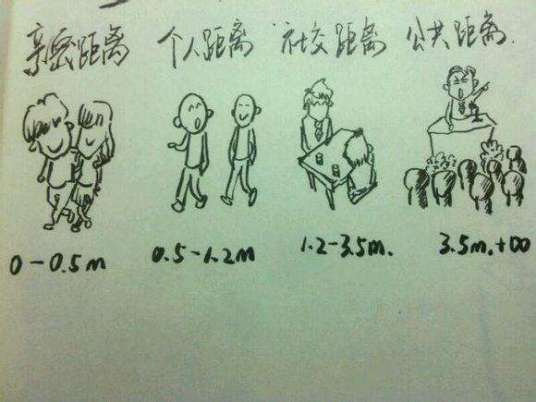 亲密距离 个人距离 社交距离 公共距离.
0-0.5m 0.5-1.2m 1.2-3.5m. 3.5m.+∞